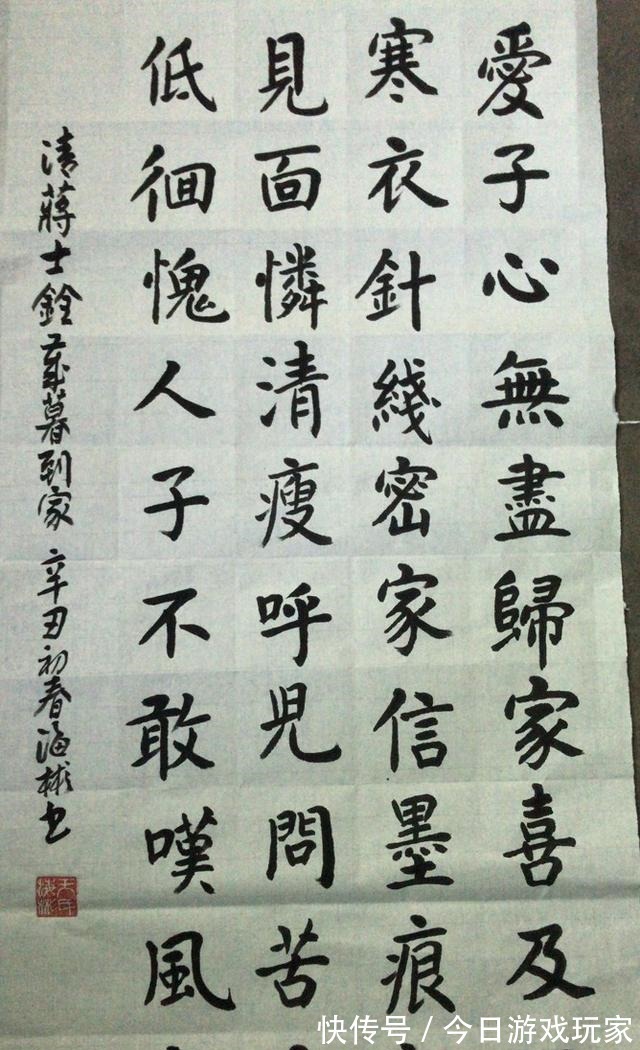 愛子心無盡歸家喜及
寒衣針綫密家信墨痕
見面憐清瘦呼兒問苦
低徊愧人子不敢嘆風
清蔣士銓歲暮到家 辛丑初春海彬書
快传号/今日游戏玩家